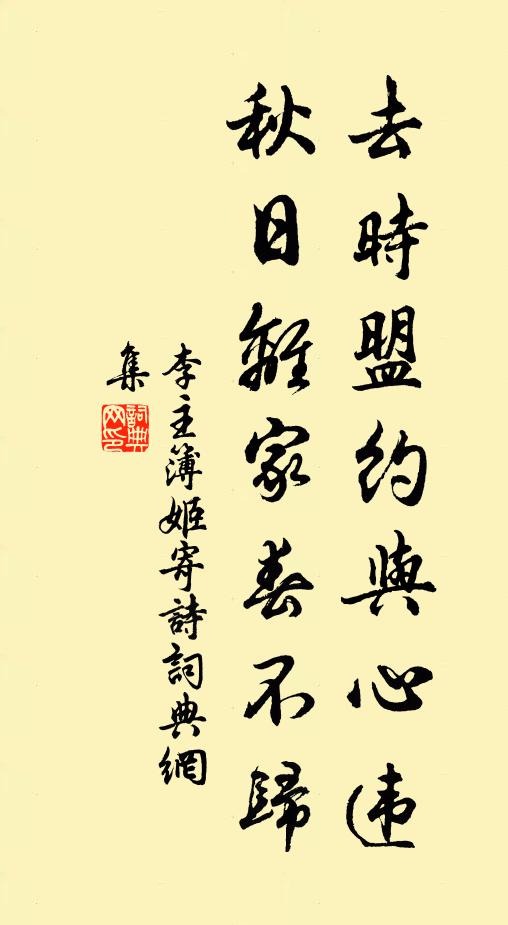 去時盟約與心违
秋日離家春不歸
李主簿姬寄詩詞典網
集
詞典网印